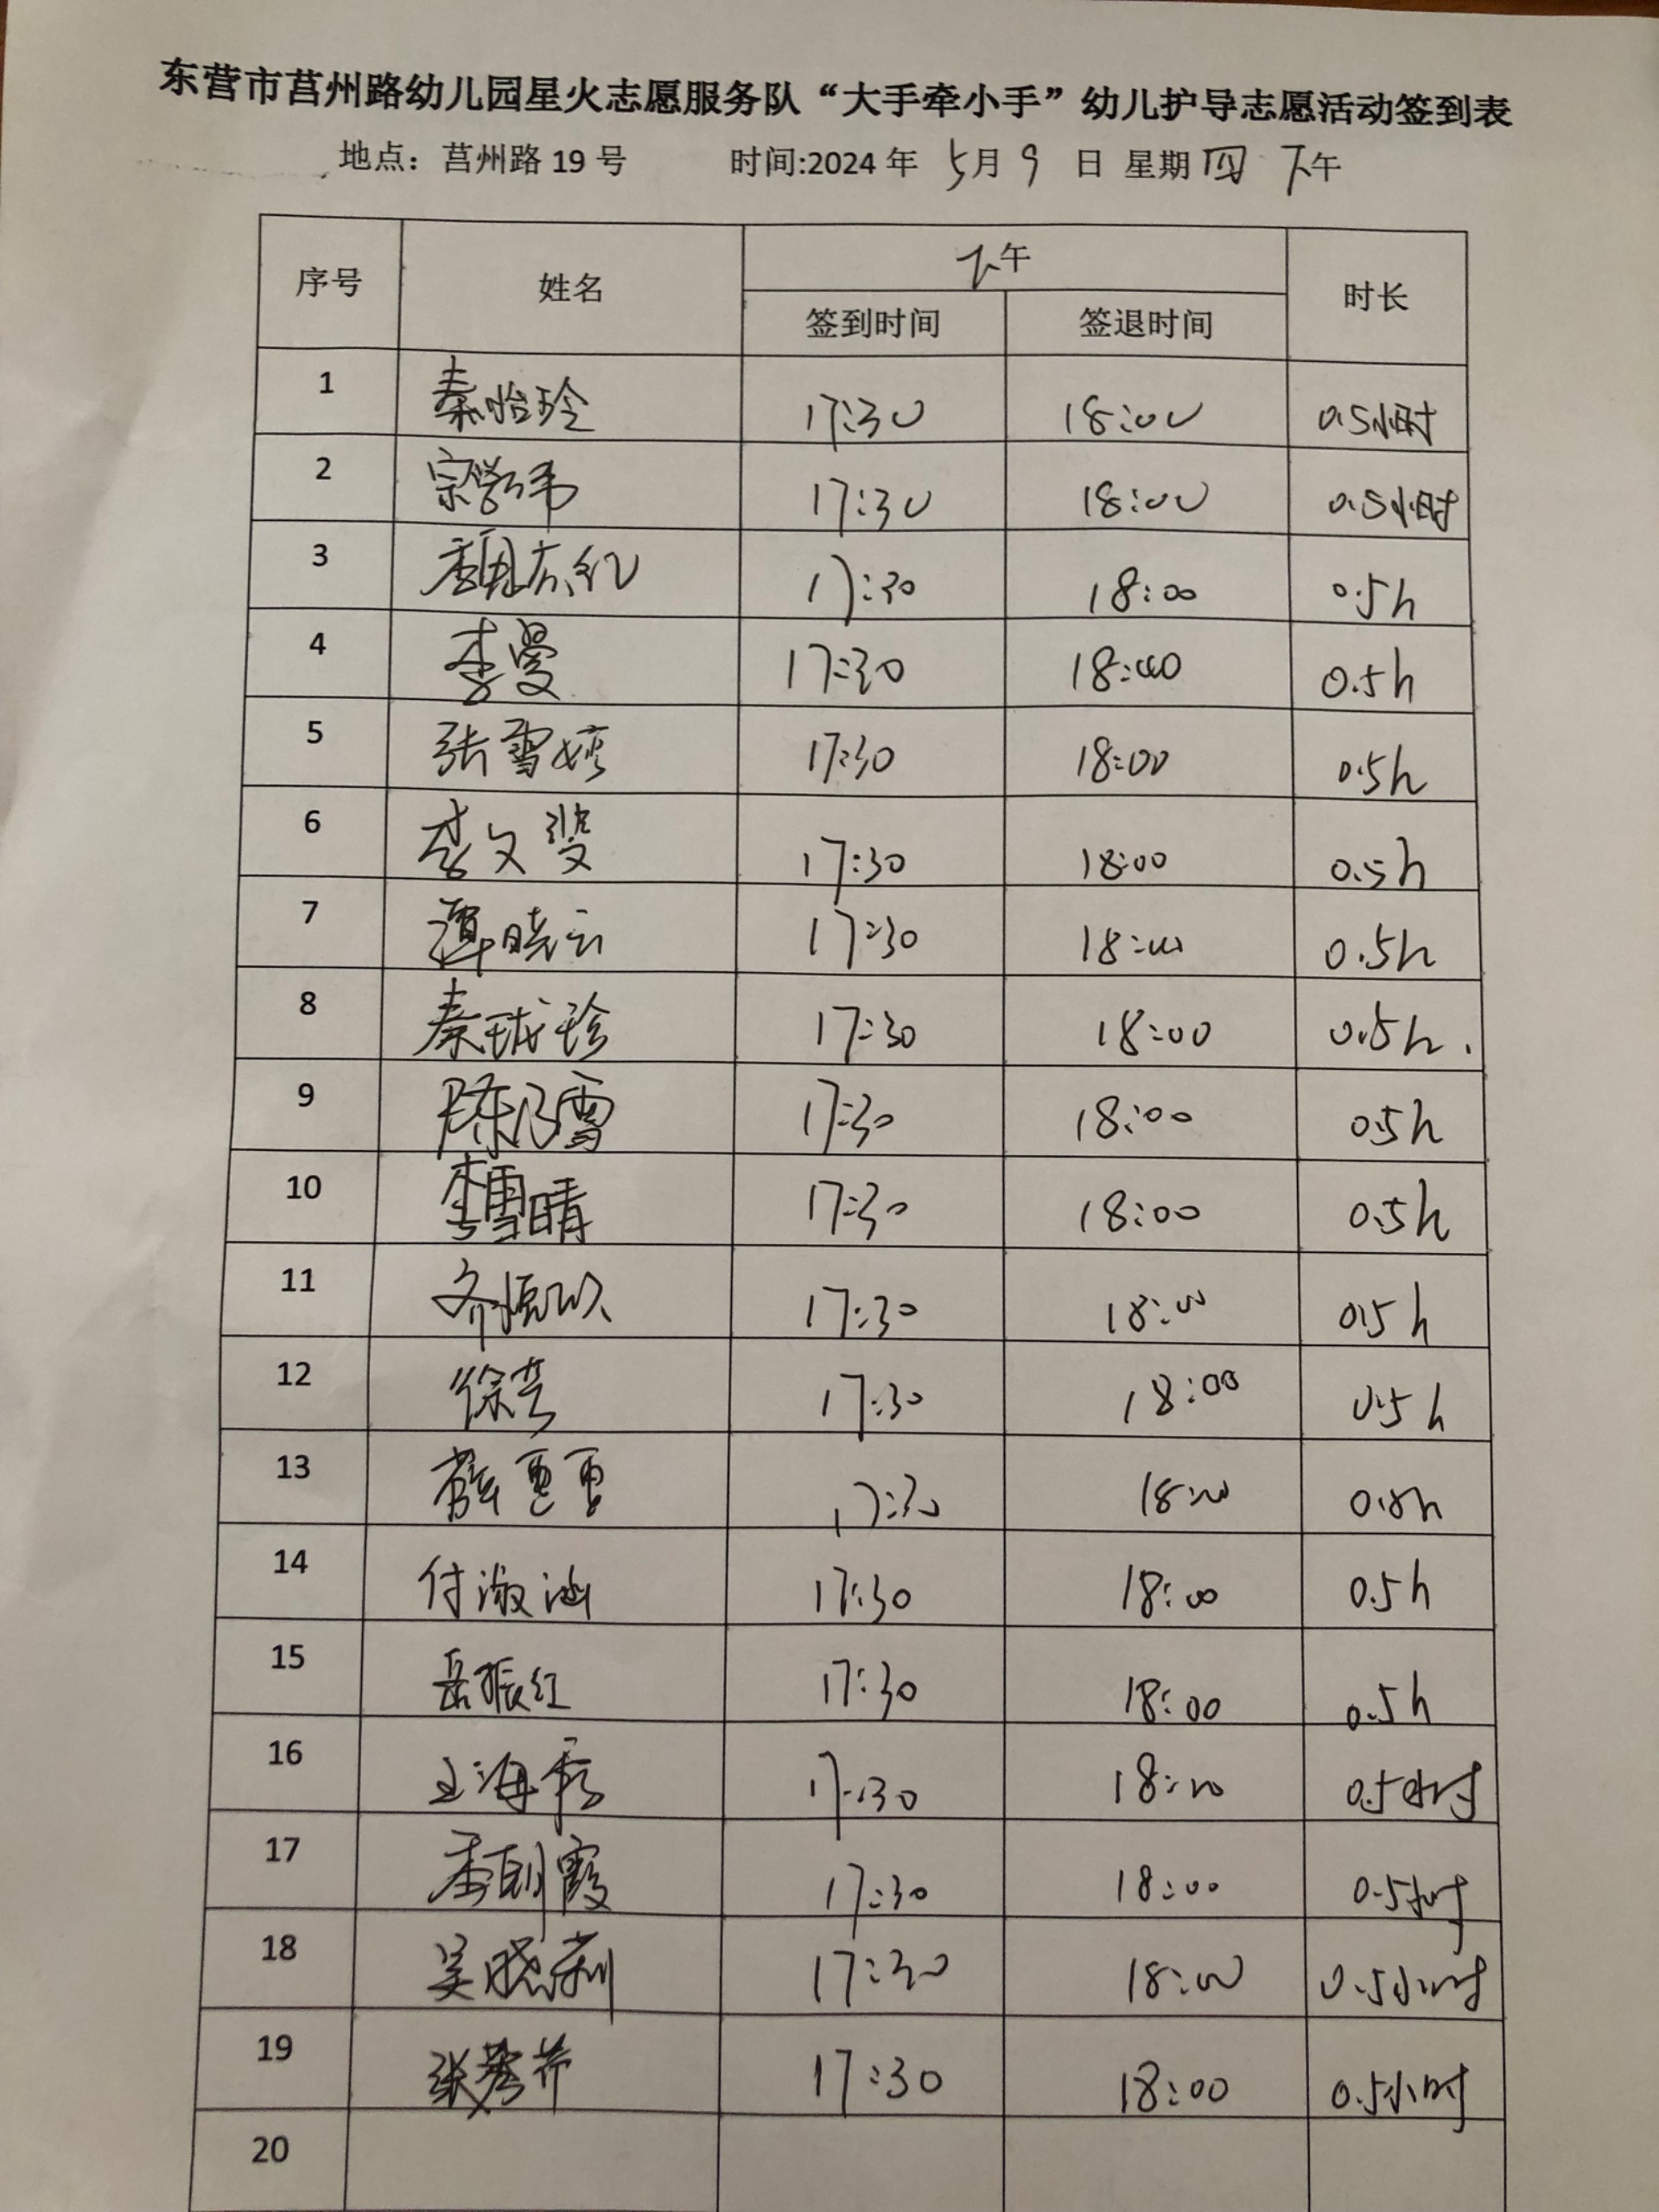 东营市莒州路幼儿园星火志愿服务队“大手牵小手”幼儿护导志愿活动签到表
地点：莒州路 19 号 时间:2024 年 5月 9 日 星期四 下午
序号 姓名 下午 时长
签到时间 签退时间
1 秦怡玲 17:30 18:00 0.5小时
2 宗 17:30 18:00 0.5小时
3 魏红 17:30 18:00 0.5h
4 李曼 17:30 18:00 0.5h
5 张雪婷 17:30 18:00 0.5h
6 李文婴 17:30 18:00 0.5h
7 谭晓云 17:30 18:00 0.5h
8 秦珑珍 17:30 18:00 0.5h.
9 陈乃雪 17:30 18:00 0.5h
10 李雪晴 17:30 18:00 0.5h
11 齐 17:30 18:00 0.5h
12 徐 17:30 18:00 0.5h
13 薛 17:30 18:00 0.5h
14 付淑涵 17:30 18:00 0.5h
15 岳振红 17:30 18:00 0.5h
16 王海 17:30 18:00 0.5小时
17 李朝霞 17:30 18:00 0.5小时
18 吴晓莉 17:30 18:00 0.5小时
19 张秀芹 17:30 18:00 0.5小时
20